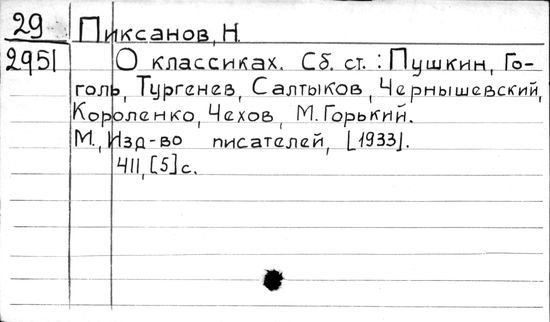 29
2951
Пиксанов, Н.
О классиках. Сб. ст.: Пушкин, Го-
голь, Тургенев, Салтыков, Чернышевский,
Короленко, Чехов, М. Горький.
М., Изд-во писателей, [1933].
411, [5] с.